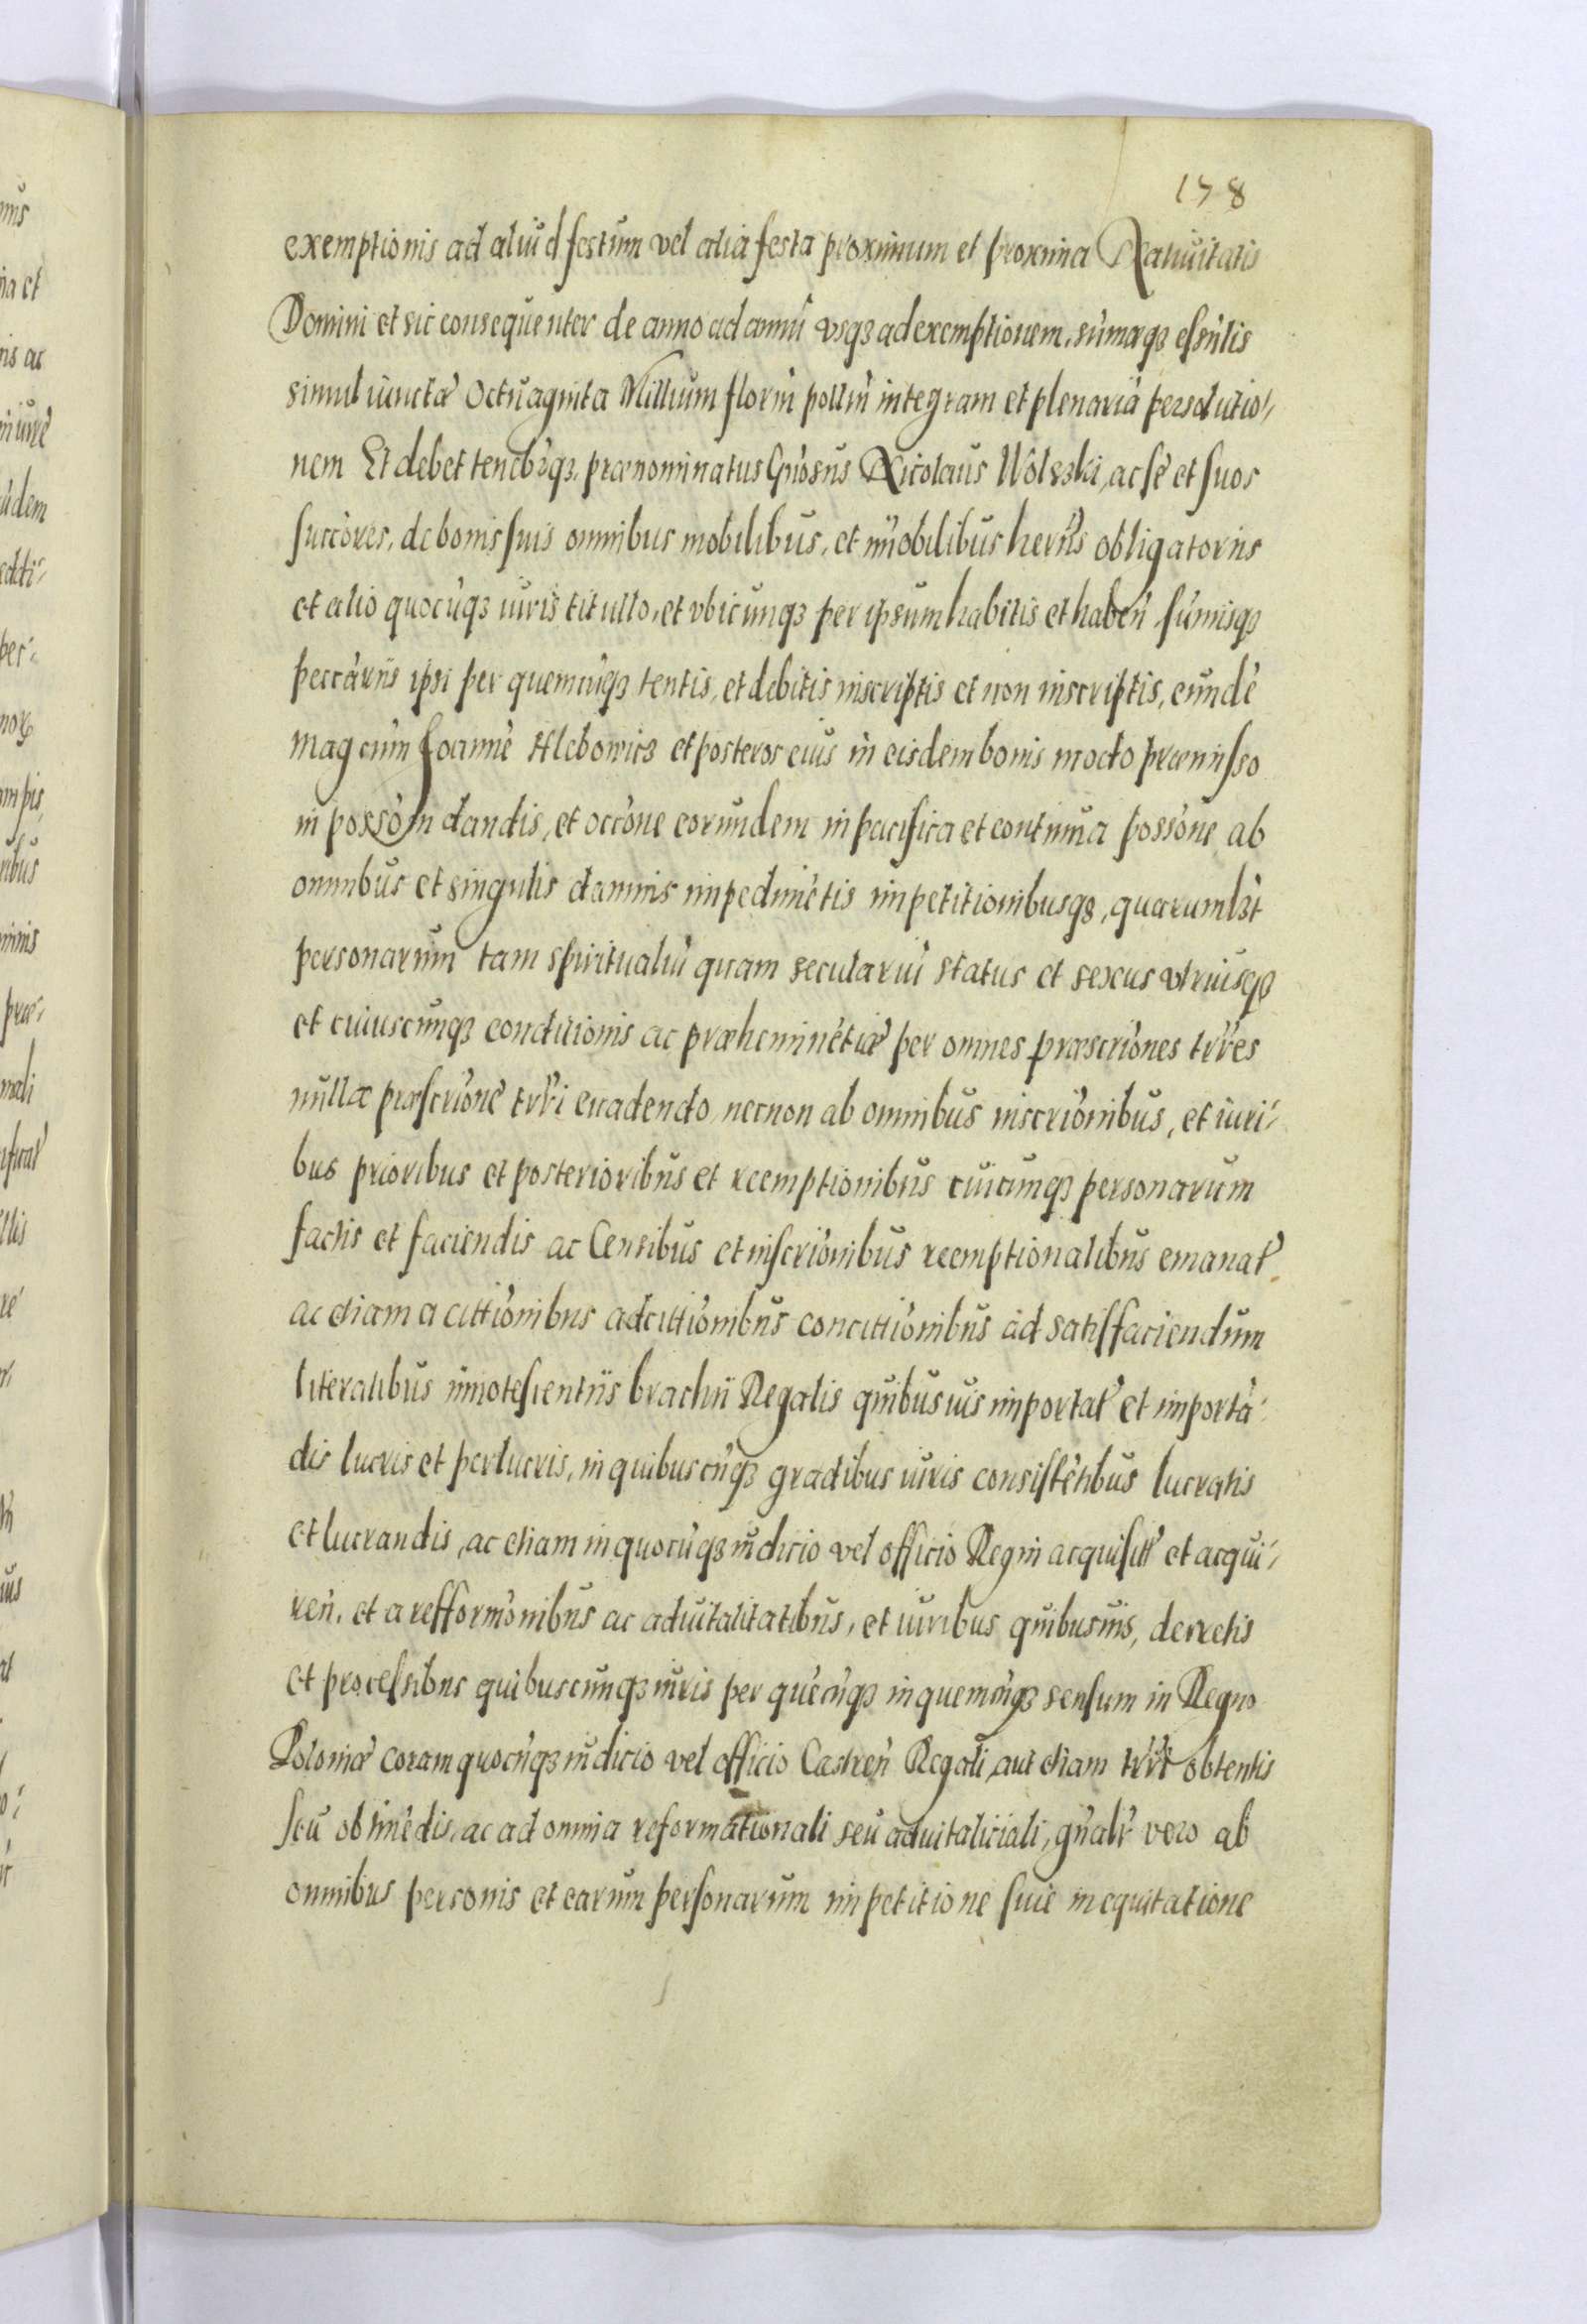 178
exemptionis ad aliud festum vel alia festa proximum et proxima Natiuitatis
Domini et sic consequenter de anno ad annū vsqȝ ad exemptionem, sūmaqȝ
simul iunctæ Octuaginta Millium florīn pollīn integram et plenariā persolutio⸗
nem Et debet tenebȝqȝ prænominatus Gnōsus Nicolaus Wolszki, ac sē et suos
succōres, de bonis suis omnibus mobilibus, et im̄obilibus herīis obligatoriis
et alio quocūqȝ iuris titullo, et vbicunqȝ per ipsum habitis et habeñ sum̄isqȝ
peccāriis ipsi per quemcūqȝ tentis, et debitis inscriptis et non inscriptis, eundē
magcūm Joannē Hlebowicȝ et posteros eius in eisdem bonis modo præmisso
in possōm dandis, et occōne eorundem in pacifica et continua possōne ab
omnibus et singulis damnis impedimētis impetitionibusqȝ, quarumlȝt
personarum tam spiritualiū quam seculariū status et sexus vtriusqȝ
et cuiuscunqȝ conditionis ac præheminētiæ per omnes præscriōnes trr̄es
nullæ præscriōnē trr̄i euadendo necnon ab omnibus inscriōnibus, et iuri⸗
bus prioribus et posterioribus et reemptionibus cuicunqȝ personarum
factis et faciendis ac Censibus et inscriōnibus reemptionalibus emanat̄
ac etiam a cittiōnibus adcittiōnibus concittiōnibus ad satisfaciendum
literalibus innotesientiis brachii Regalis quibusuis importat̄ et importā⸗
dis lucris et perlucris, in quibuscūqȝ gradibus iuris consistētibus lucratis
et lucrandis, ac etiam in quocūqȝ iudicio vel officio Regni acquisitt̄ et acqui⸗
reñ, et a refformōnibus ac aduitalitatibus, et iuribus quibusuis, decretis
et processibus quibuscunqȝ iuris per quēcūqȝ in quemcūqȝ sensum in Regno
Poloniæ coram quocūqȝ iudicio vel officio Castreñ Regali, aut etiam obtentis
seu obtinēdis, ac ad omnia reformationali seu aduitaliciali, gn̄alr̄ vero ab
omnibus personis et earum personarum impetitione siue inequitatione